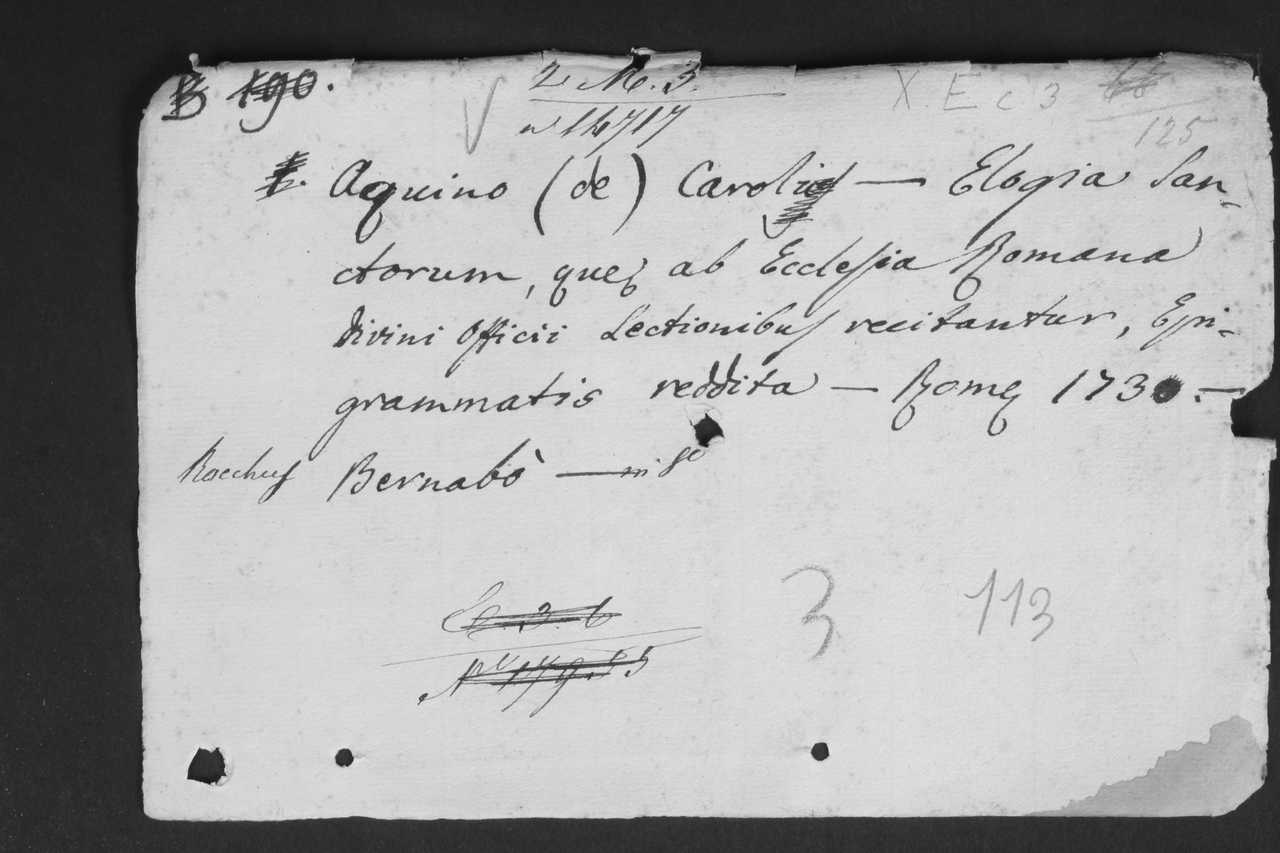 B 190.
2. M. 3.
nº 14717
X. E c 3
125
Aquino (de) Caroli — Elogia San,
ctorum, quę ab Ecclesia Romana
divini Officii Lectionibus recitantur, Epi-
grammatis reddita — Romę 1730. —
Rocchus Bernabò — in 8º
3
113